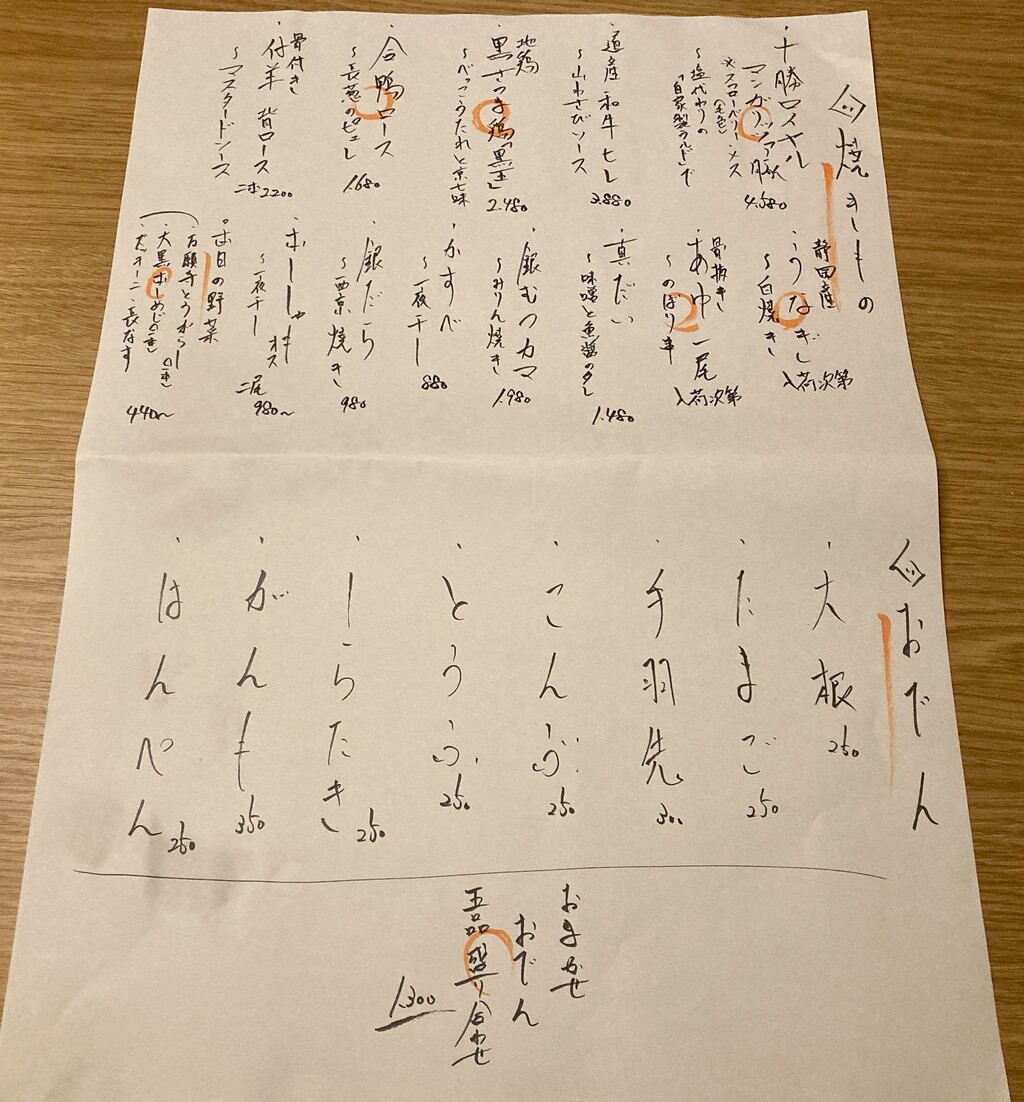 焼きもの
・十勝ロイヤル
マンガリッツァ豚
4.580
～塩代わりの
「自家製ラルド」で
・道産和牛ヒレ
～山わさびソース
3.880
地鶏
・黒さつま鶏「黒王」
～べっこうたれと京七味
2.480
・合鴨ロース
～長葱のピュレ
1.680
骨付き
・仔羊 背ロース
～マスタードソース
二本2200
静岡産
・うなぎ
～白焼き
入荷次第
骨抜き
・あゆ 一尾
～のぼり串
入荷次第
・真だい
～味噌と魚醤のタレ
1.480
・銀むつカマ
～みりん焼き
1.980
・かすべ
～一夜干し
880
・銀だら
～西京焼き
980
・ししゃも
～一夜干し オス
二尾 980～
本日の野菜
・万願寺とうがらし(一本)
・大黒本しめじ(一本)
・ズッキーニ・長なす
440～
おでん
・大根 250
・たまご 250
・手羽先 300
・こんぶ 250
・とうふ 250
・しらたき 250
・がんも 350
・はんぺん 250
おまかせ
おでん
五品盛り合わせ
1.300